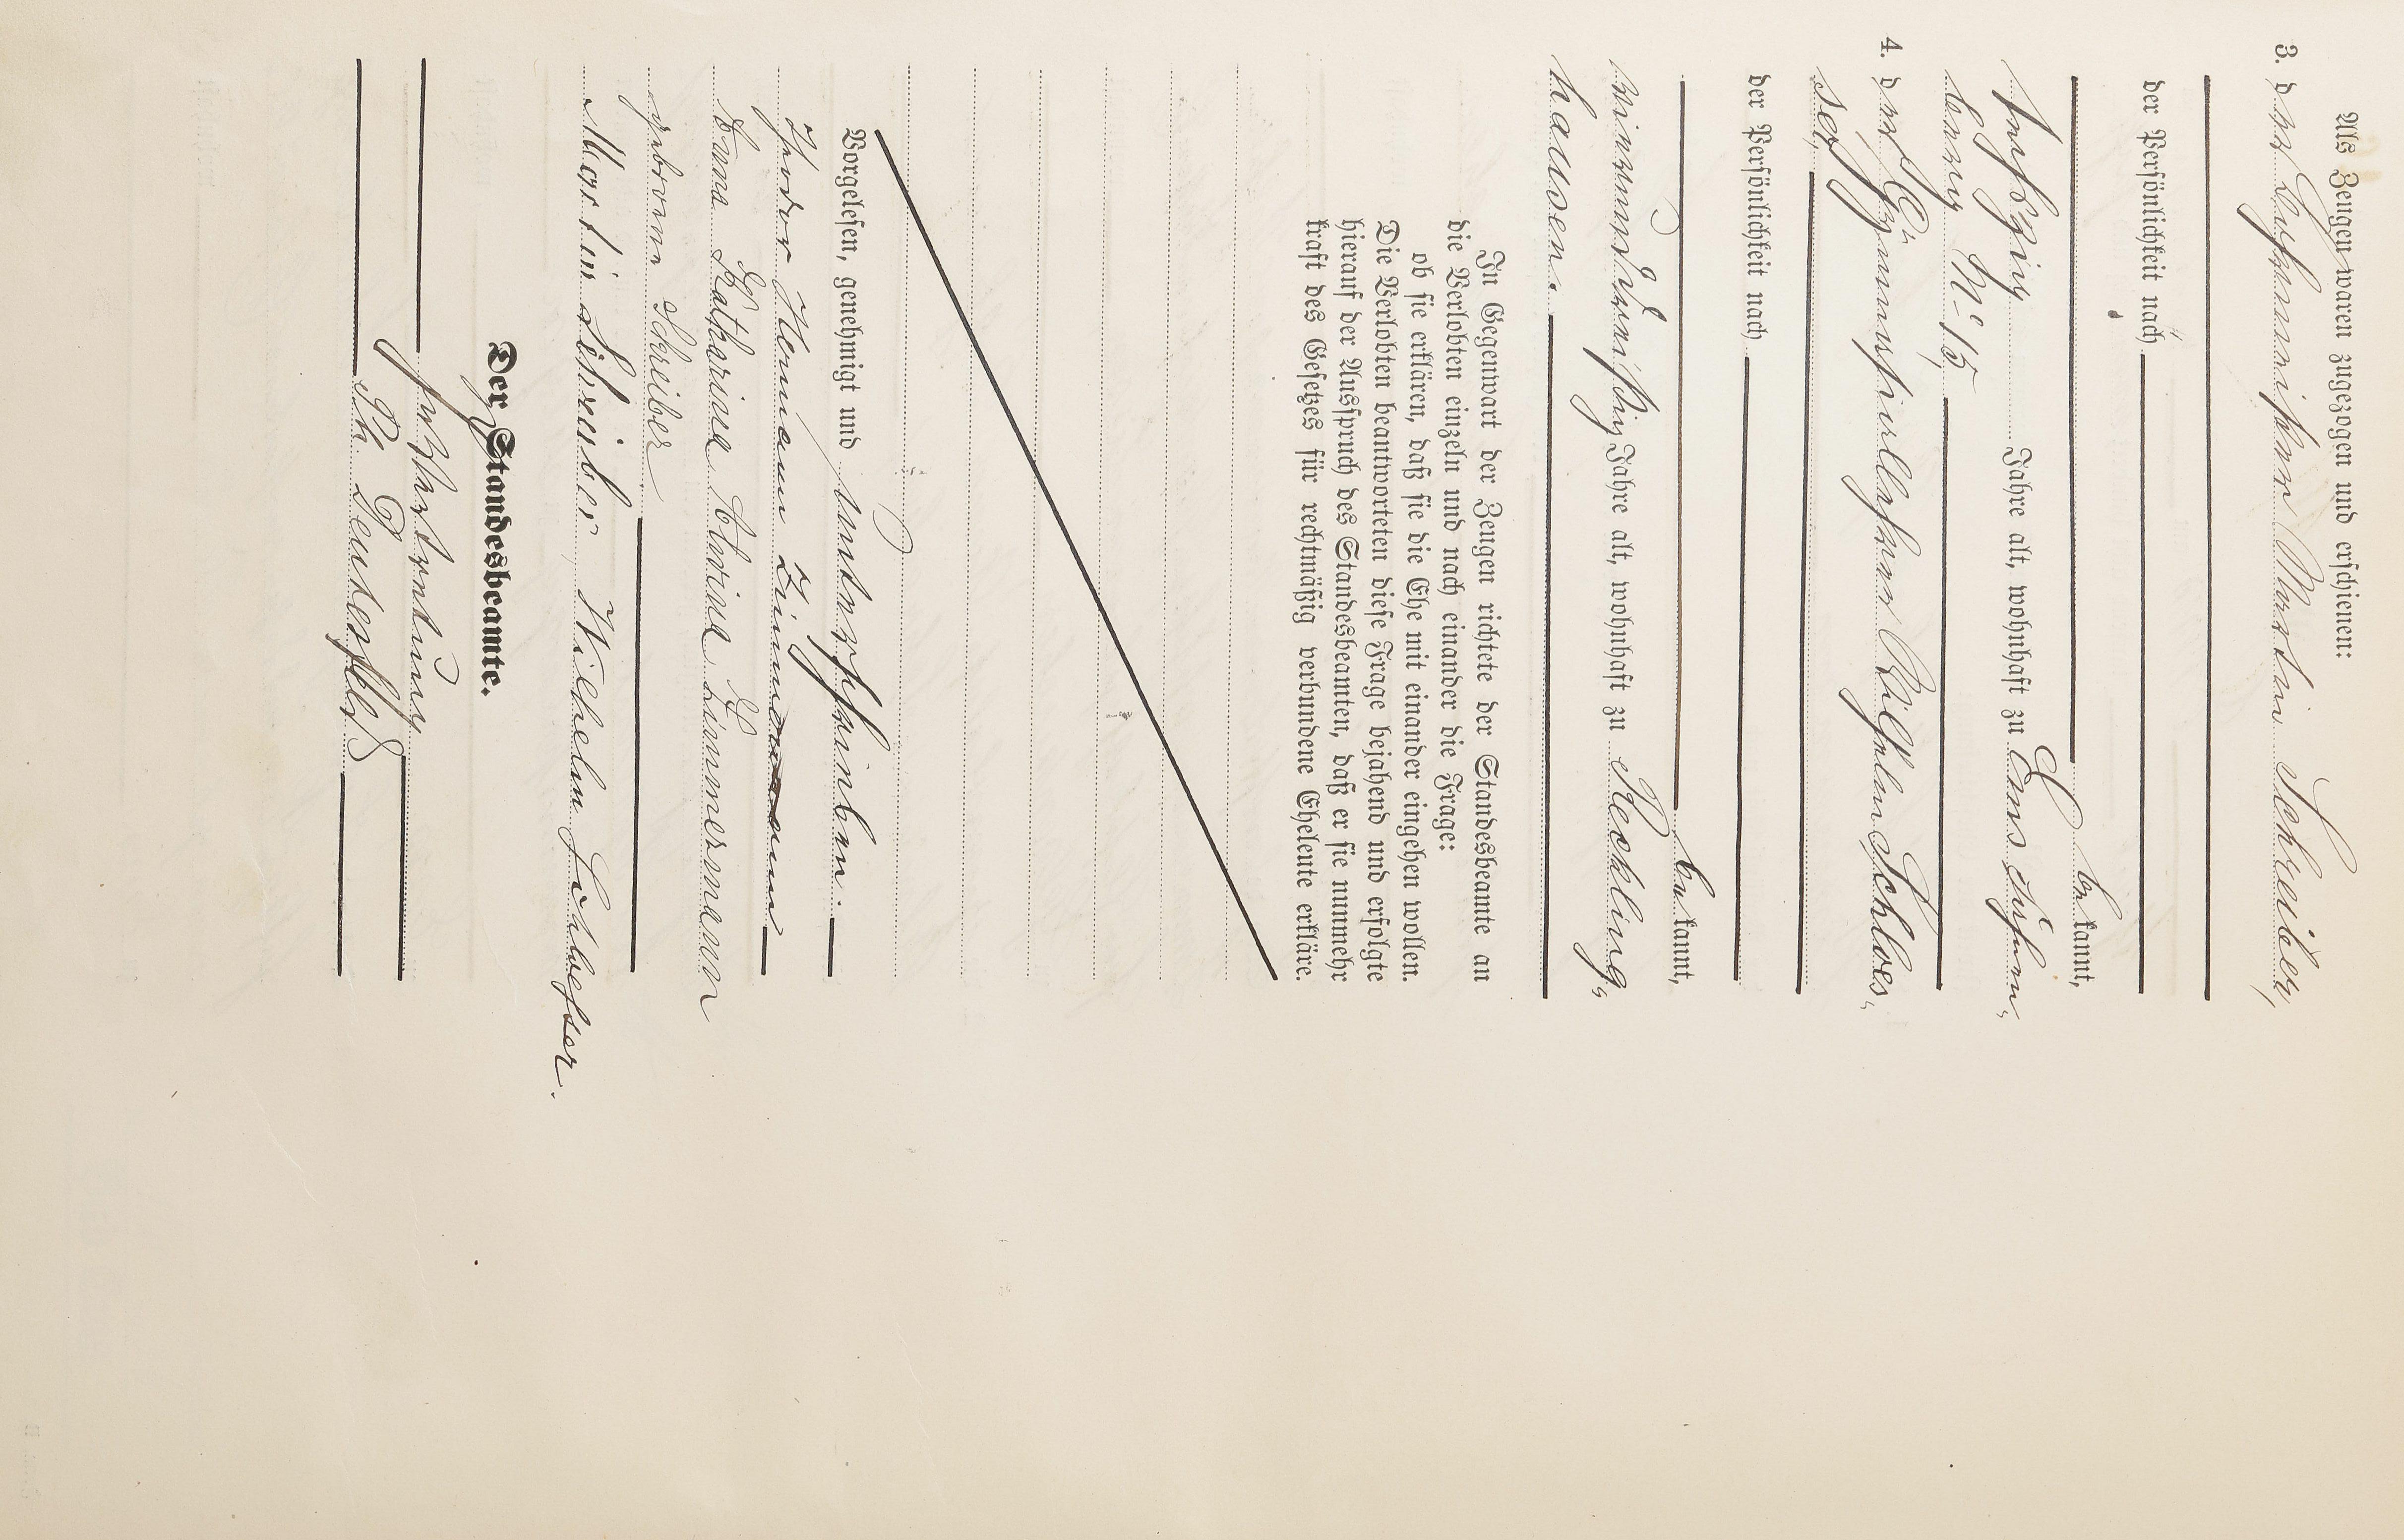 Als Zeugen waren zugezogen und erschienen:
3. der Bahnmeister Martin Schreiber,
der Persönlichkeit nach
bekannt,
sechszig Jahre alt, wohnhaft zu Ems Fuhren-
berg No 15
4. der Gymnasiallehrer Wilhelm Schloes-
ser,
der Persönlichkeit nach
bekannt,
einunddreißig Jahre alt, wohnhaft zu Reckling-
hausen.
In Gegenwart der Zeugen richtete der Standesbeamte an
die Verlobten einzeln und nach einander die Frage:
ob sie erklären, daß sie die Ehe mit einander eingehen wollen.
Die Verlobten beantworteten diese Frage bejahend und erfolgte
hierauf der Ausspruch des Standesbeamten, daß er sie nunmehr
kraft des Gesetzes für rechtmäßig verbundene Eheleute erkläre.
Vorgelesen, genehmigt und unterschrieben.
Hermann Zimmermann
Anna Katharina Zimmermann
geborene Schreiber
Martin Schreiber Wilhelm Schloesser.
Der Standesbeamte.
In Vertretung